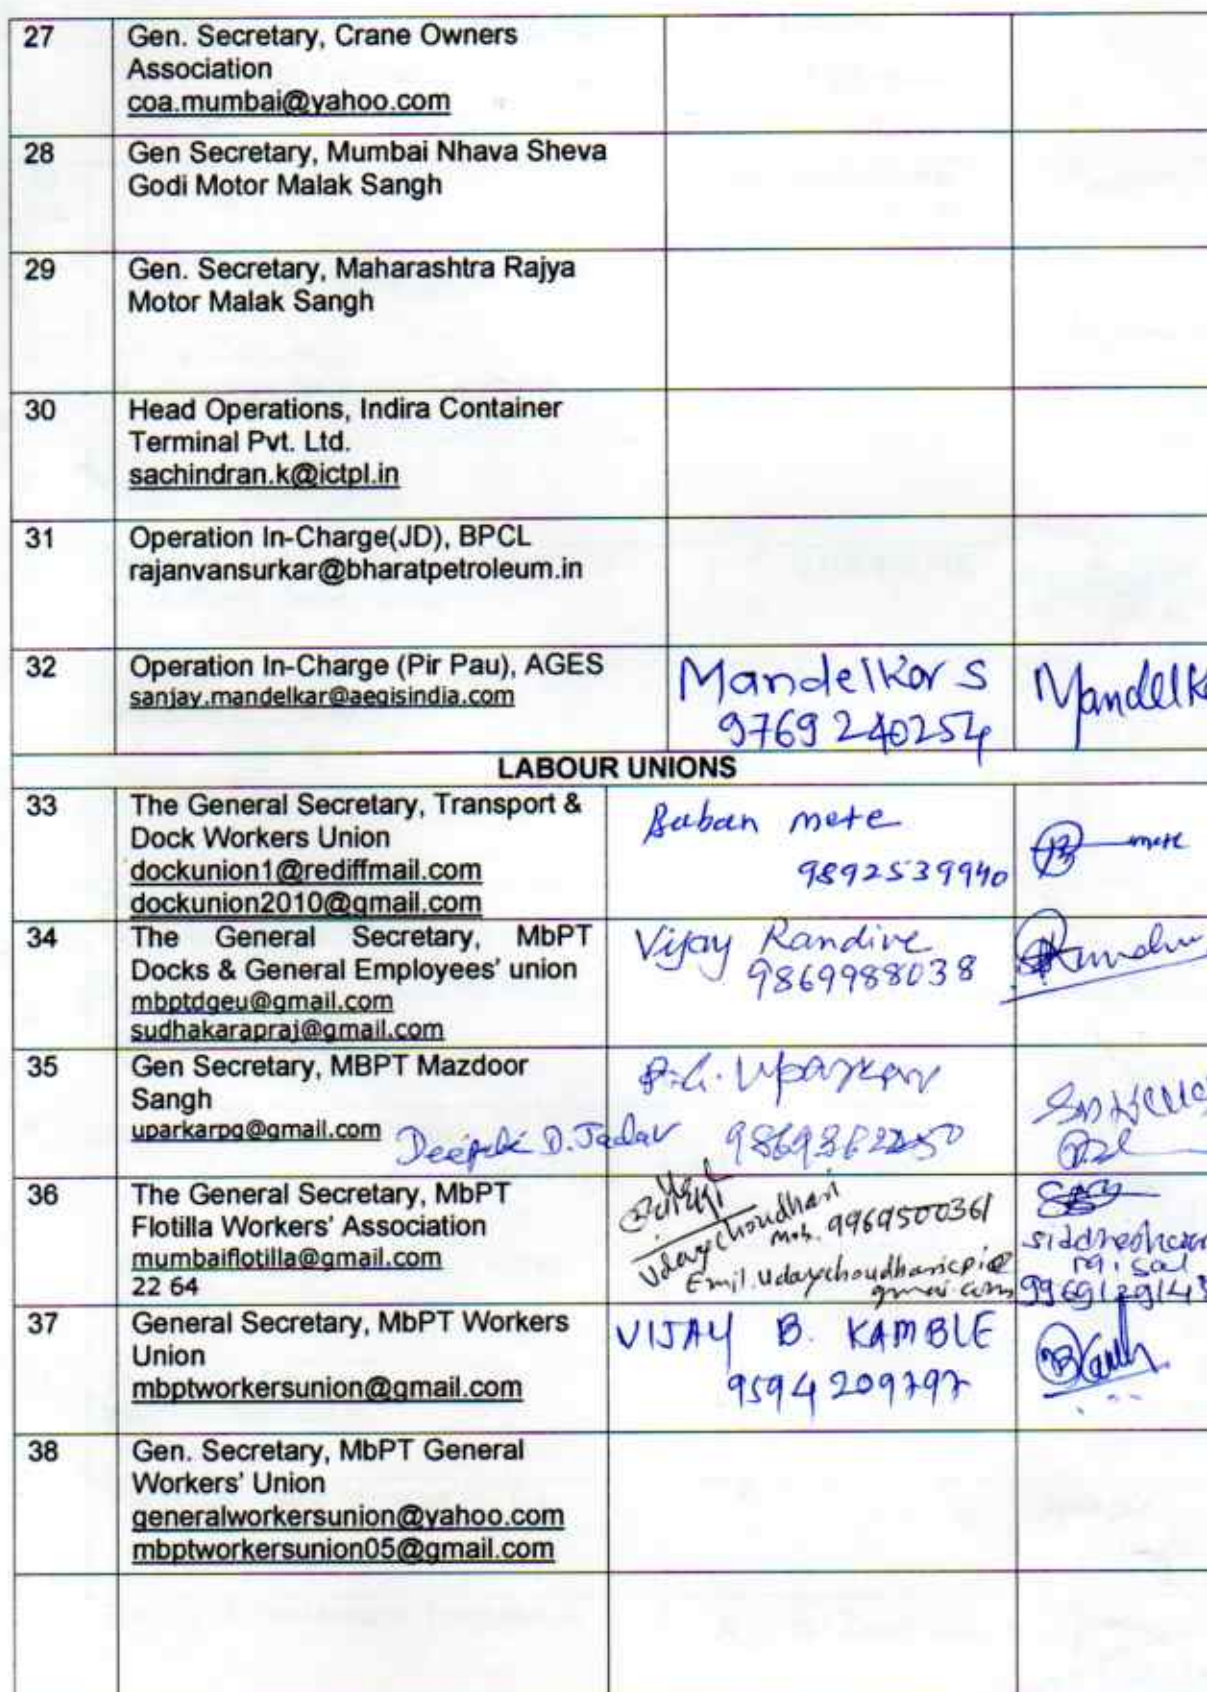 27
Gen. Secretary, Crane Owners
Association
coa.mumbai@yahoo.com
28
Gen Secretary, Mumbai Nhava Sheva
Godi Motor Malak Sangh
29
Gen. Secretary, Maharashtra Rajya
Motor Malak Sangh
30
Head Operations, Indira Container
Terminal Pvt. Ltd.
sachindran.k@ictpl.in
31
Operation In-Charge(JD), BPCL
rajanvansurkar@bharatpetroleum.in
32
Operation In-Charge (Pir Pau), AGES
sanjay.mandelkar@aegisindia.com
Mandelkar S
9769240254
LABOUR UNIONS
33
The General Secretary, Transport &
Dock Workers Union
dockunion1@rediffmail.com
dockunion2010@gmail.com
Baban mete
9892539940
mete
34
The General Secretary, MbPT
Docks & General Employees' union
mbptdgeu@gmail.com
sudhakarapraj@gmail.com
Vijay Randive
9869988038
35
Gen Secretary, MBPT Mazdoor
Sangh
uparkarpg@gmail.com
Uparkar
Deepak D. Jadav
36
The General Secretary, MbPT
Flotilla Workers' Association
mumbaiflotilla@gmail.com
22 64
Udaychoudhari
Mob. 9969500361
37
General Secretary, MbPT Workers
Union
mbptworkersunion@gmail.com
VIJAY B. KAMBLE
9594209797
38
Gen. Secretary, MbPT General
Workers' Union
generalworkersunion@yahoo.com
mbptworkersunion05@gmail.com